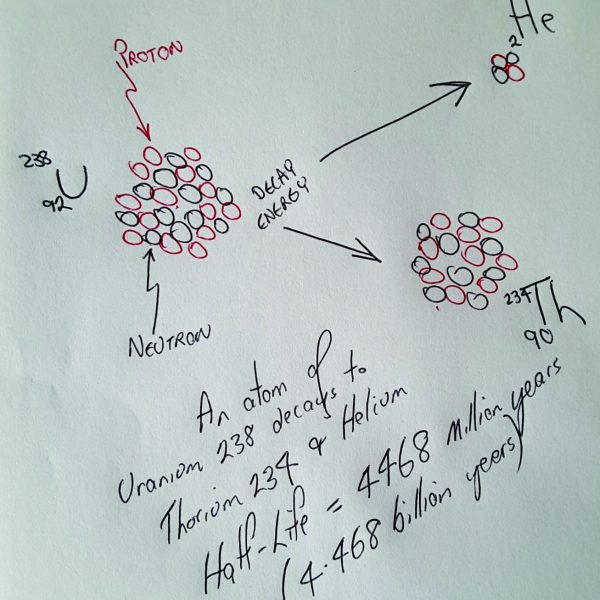 PROTON
2He
238
92U
DECAY
ENERGY
NEUTRON
234Th
90
An atom of
Uranium 238 decays to
Thorium 234 & Helium
Half-Life = 4468 Million years
(4.468 billion years)